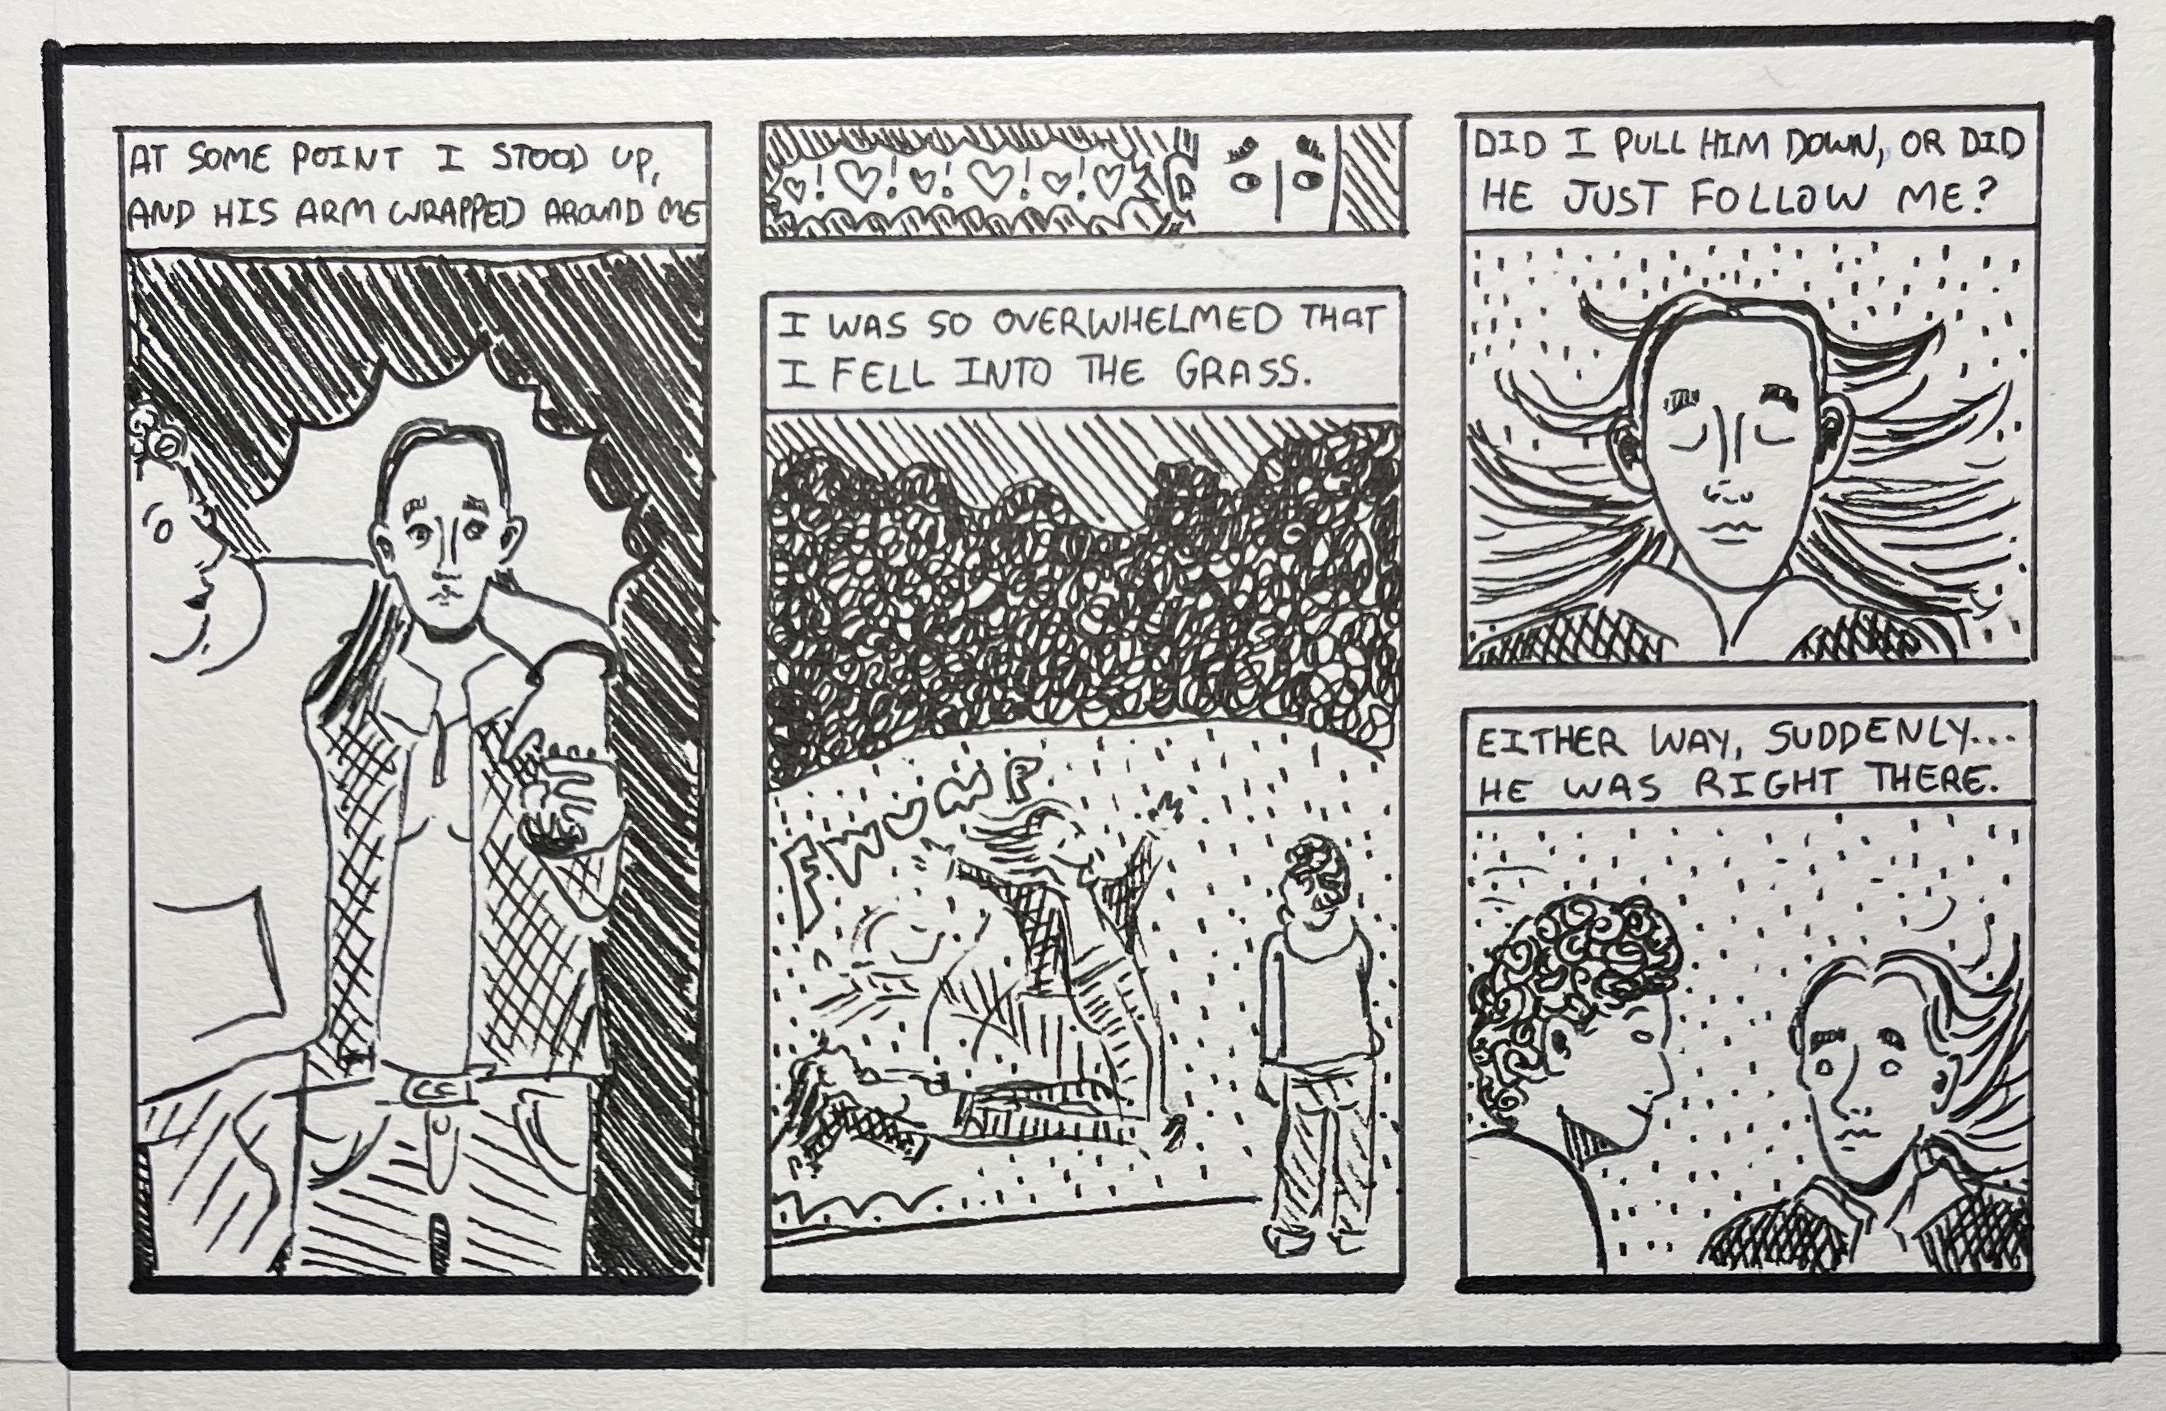 AT SOME POINT I STOOD UP,
AND HIS ARM WRAPPED AROUND ME
! ! ! ! !
I WAS SO OVERWHELMED THAT
I FELL INTO THE GRASS.
FWUMP
DID I PULL HIM DOWN, OR DID
HE JUST FOLLOW ME?
EITHER WAY, SUDDENLY...
HE WAS RIGHT THERE.